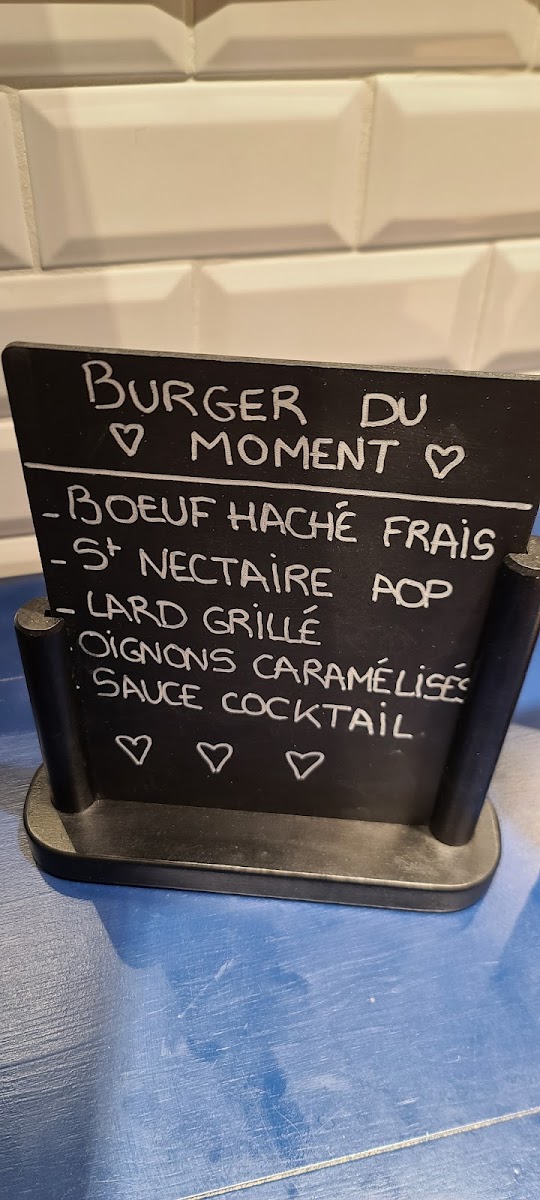 BURGER DU
♡ MOMENT ♡
- BOEUF HACHÉ FRAIS
- St NECTAIRE AOP
- LARD GRILLÉ
. OIGNONS CARAMÉLISÉS
. SAUCE COCKTAIL
♡ ♡ ♡